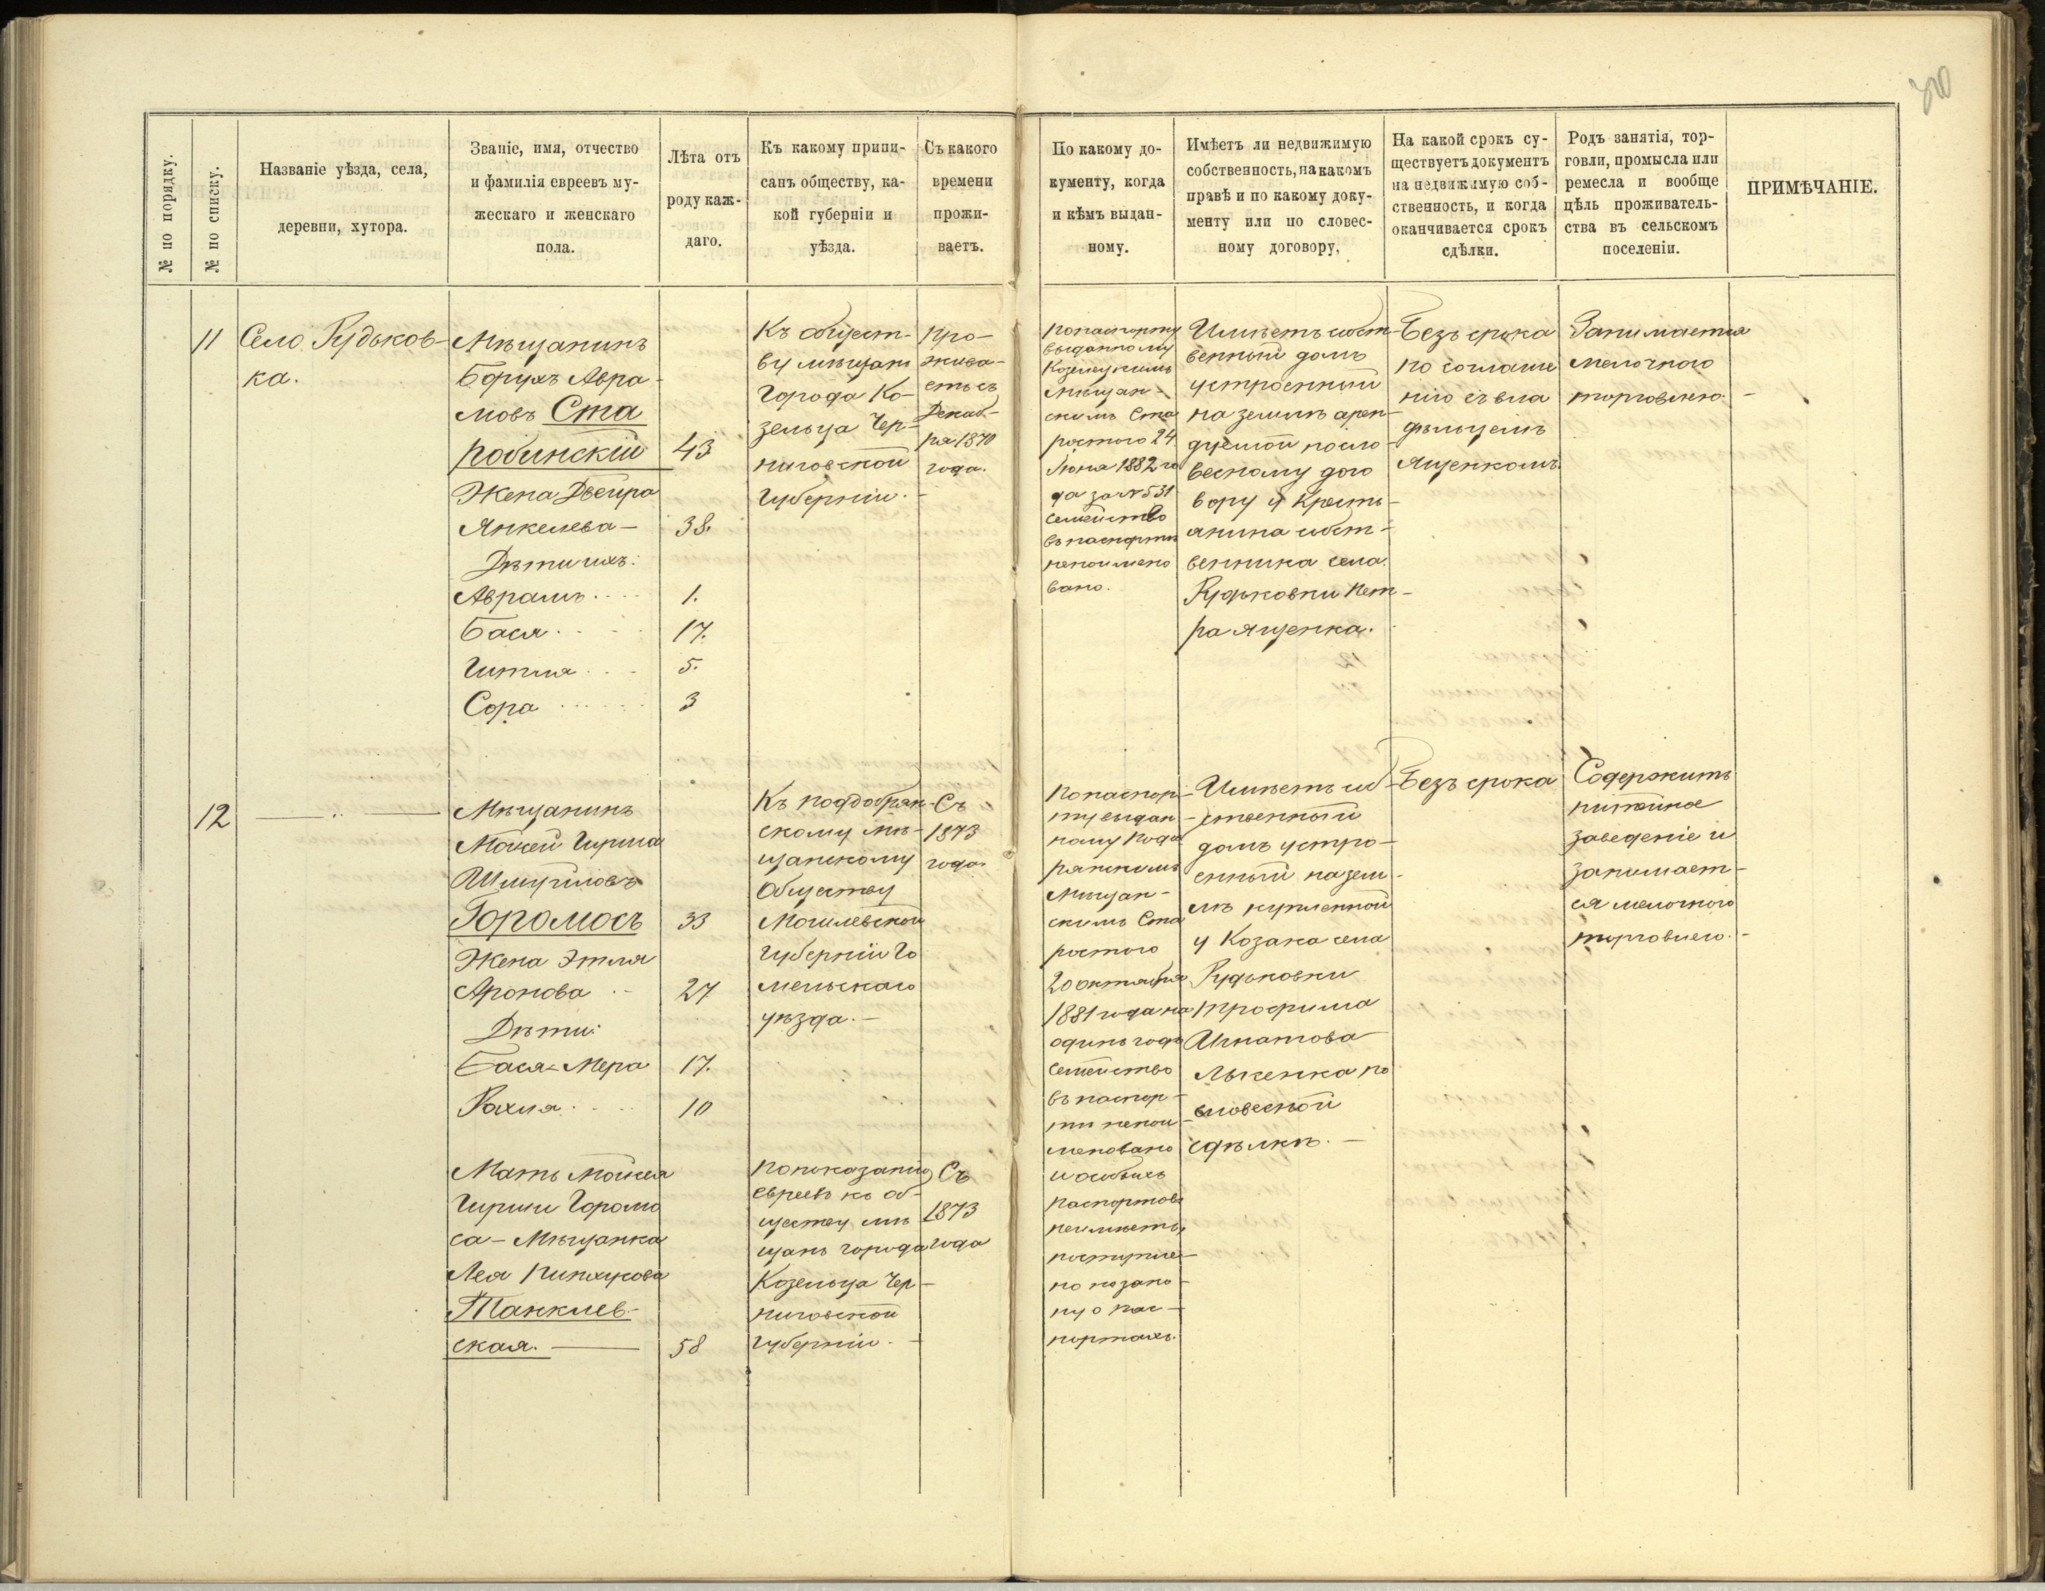 300
№ по порядку.
№ по списку.
Названіе уѣзда, села,
деревни, хутора.
Званіе, имя, отчество
и фамилія евреевъ му-
жескаго и женскаго
пола.
Лѣта отъ
роду каж-
даго.
Къ какому припи-
санъ обществу, ка-
кой губерніи и
уѣзда.
Съ какого
времени
прожи-
ваетъ.
По какому до-
кументу, когда
и кѣмъ выдан-
ному.
Имѣетъ ли недвижимую
собственность, на какомъ
правѣ и по какому доку-
менту или по словес-
ному договору.
На какой срокъ су-
ществуетъ документъ
на недвижимую соб-
ственность, и когда
оканчивается срокъ
сдѣлки.
Родъ занятія, тор-
говли, промысла или
ремесла и вообще
цѣль проживатель-
ства въ сельскомъ
поселеніи.
ПРИМѢЧАНІЕ.
11
Село Рудьков-
ка.
Мѣщанинъ
Борухъ Авра-
мовъ Ста
робинскій
Жена Двейра
Янкелева —
Дѣти ихъ:
Аврамъ
Бася
Гитля
Сора
43
38.
1.
17.
5.
3
Къ общест-
ву мѣщанъ
Города Ко-
зельца Чер-
ниговской
Губерніи. —
Про-
жива-
етъ съ
Декаб-
ря 1870
года.
По паспорту
выданному
Козелецкимъ
мѣщан-
скимъ Ста
ростою 24
Іюня 1882 го
да за № 531
семейство
въ паспортѣ
непоимено
вано.
Имѣетъ собст-
венный домъ
устроенный
на землѣ арен-
дуемой по сло-
весному дого
вору у Кресть-
янина собст-
венника села
Рудьковки Пет-
ра Яценка.
Безъ срока
по соглаше
нію съ вла
дѣльцемъ
Яценкомъ.
Занимается
мелочною
торговлею. —
12
Мѣщанинъ
Мойсей Гирша
Шмуйловъ
Горомосъ
Жена Этля
Аронова
Дѣти:
Бася-Мера
Рахля
33
27
17.
10
Къ Поддобрян-
скому мѣ-
щанскому
Обществу
Могилевской
губерніи Го
мельскаго
уѣзда. —
Съ
1873
года
По паспор-
ту выдан-
мѣщан-
скимъ Ста
ростою
20 октября
1881 года на
одинъ годъ
семейство
въ паспор-
тѣ непои-
меновано
и особыхъ
паспортовъ
неимѣетъ,
поступле-
но по зако-
ну о пас-
портахъ.
Имѣетъ соб-
ственный
домъ устро-
енный на зем-
лѣ купленной
у Козака села
Рудьковки
Трофима
Игнатова
Лысенка по
словесной
сдѣлкѣ. —
Безъ срока
Содержитъ
питейное
заведеніе и
занимает-
ся мелочною
торговлею. —
Мать Мойсея
Гирши Горомо
са — Мѣщанка
Лея Пинхусова
Танклев-
ская. —
58
По показанію
евреевъ къ об-
ществу мѣ
щанъ города
Козельца Чер-
ниговской
Губерніи. —
Съ
1873
года